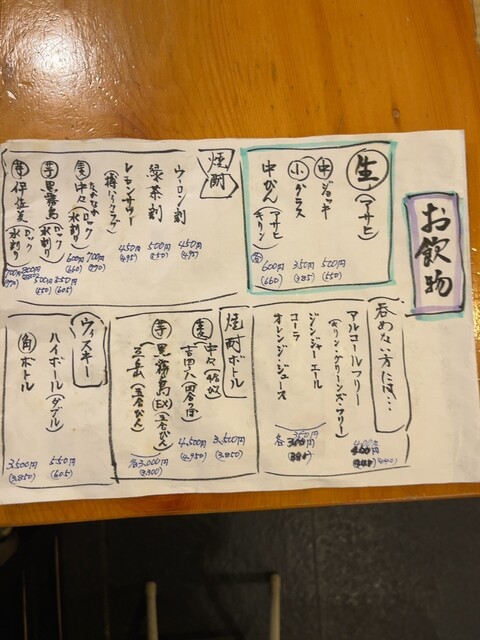 お飲物
生(アサヒ)
中ジョッキ 500円 (550)
小グラス 350円 (385)
中びん(アサヒ キリン) 各600円 (660)
焼酎
ウーロン割 450円 (495)
緑茶割 500円 (550)
レモンサワー 450円 (495)
麦 中々 ロック 700円 (770) 水割り 600円 (660)
芋 黒霧島 ロック 550円 (605) 水割り 500円 (550)
芋 伊佐美 ロック 水割り 700円 (770)
呑めない方には…
アルコールフリー
(キリン・グリーンズ・フリー)
ジンジャーエール
コーラ
オレンジ・ジュース
各
焼酎ボトル
麦 中々 3,500円 (3,850)
吉四六 4,500円 (4,950)
芋 黒霧島(EX)(五合びん)
(五合びん) 各3,000円 (3,300)
ウィスキー
ハイボール(ダブル) 550円 (605)
角ボトル 3,500円 (3,850)